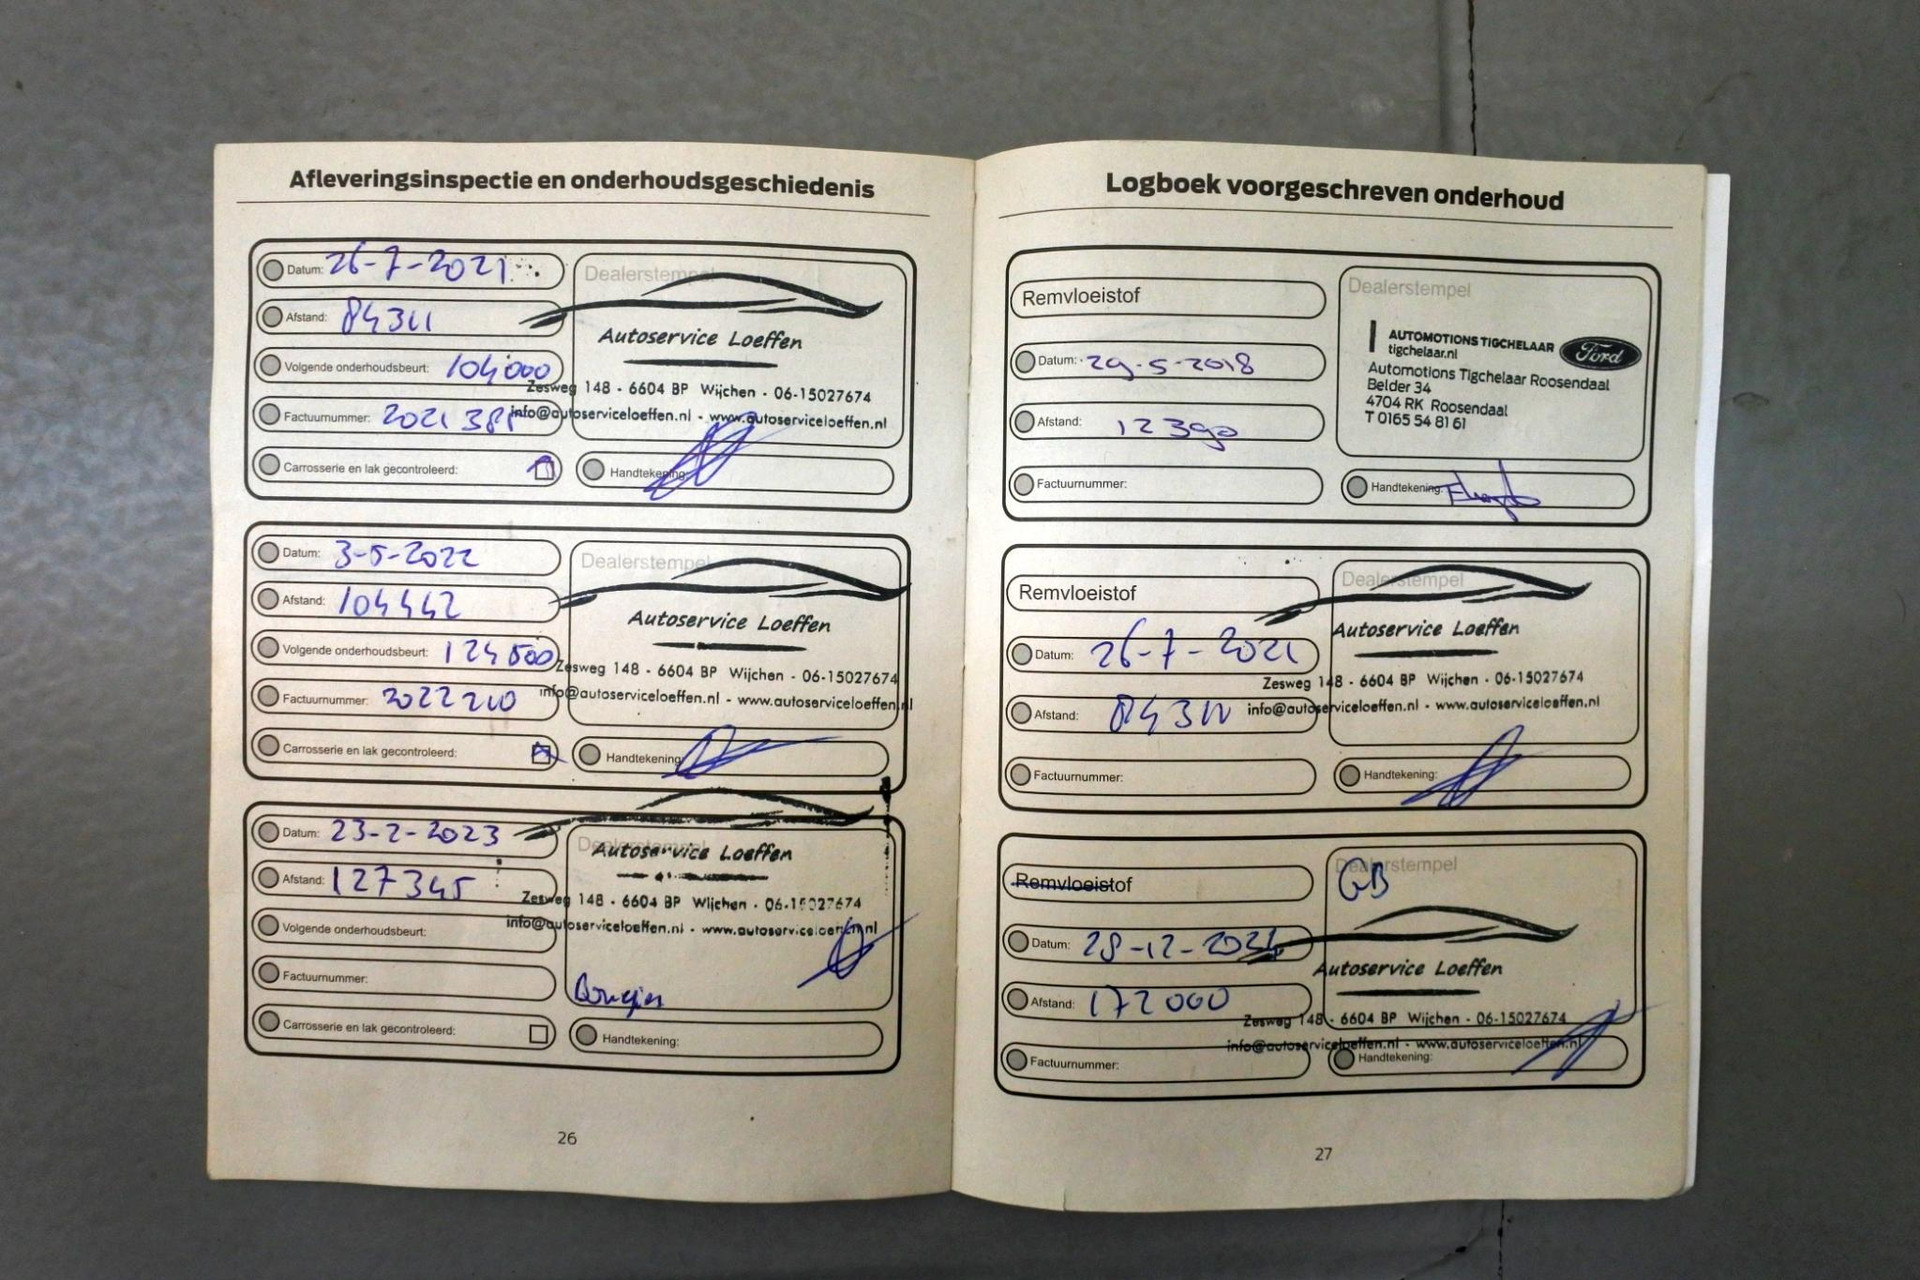 Afleveringsinspectie en onderhoudsgeschiedenis
Datum: 26-7-2021
Afstand: 84311
Volgende onderhoudsbeurt: 104000
Factuurnummer: 2021
Carrosserie en lak gecontroleerd:
Dealerstempel
Autoservice Loeffen
Zesweg 148 - 6604 BP Wijchen - 06-15027674
info@autoserviceloeffen.nl - www.autoserviceloeffen.nl
Handtekening:
Datum: 3-5-2022
Afstand: 104442
Volgende onderhoudsbeurt: 124500
Factuurnummer: 2022210
Carrosserie en lak gecontroleerd:
Dealerstempel
Autoservice Loeffen
Zesweg 148 - 6604 BP Wijchen - 06-15027674
info@autoserviceloeffen.nl - www.autoserviceloeffen.nl
Handtekening:
Datum: 23-2-2023
Afstand: 127345
Volgende onderhoudsbeurt:
Factuurnummer:
Carrosserie en lak gecontroleerd:
Dealerstempel
Autoservice Loeffen
Zesweg 148 - 6604 BP Wijchen - 06-15027674
info@autoserviceloeffen.nl - www.autoserviceloeffen.nl
Handtekening:
26
Logboek voorgeschreven onderhoud
Remvloeistof
Datum: 29-5-2018
Afstand: 12390
Factuurnummer:
Dealerstempel
AUTOMOTIONS TIGCHELAAR
tigchelaar.nl
Ford
Automotions Tigchelaar Roosendaal
Belder 34
4704 RK Roosendaal
T 0165 54 81 61
Handtekening:
Remvloeistof
Datum: 26-7-2021
Afstand: 84311
Factuurnummer:
Dealerstempel
Autoservice Loeffen
Zesweg 148 - 6604 BP Wijchen - 06-15027674
info@autoserviceloeffen.nl - www.autoserviceloeffen.nl
Handtekening:
Remvloeistof
Datum: 28-12-2024
Afstand: 172000
Factuurnummer:
Dealerstempel
GB
Autoservice Loeffen
Zesweg 148 - 6604 BP Wijchen - 06-15027674
info@autoserviceloeffen.nl - www.autoserviceloeffen.nl
Handtekening:
27